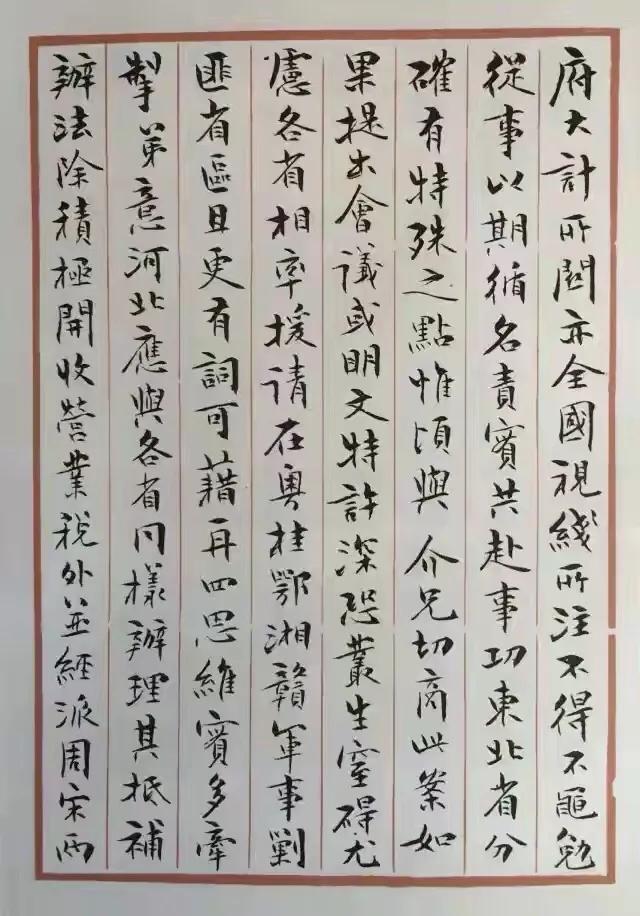 府大計所關亦全國視綫所注不得不黽勉
從事以期循名責實共赴事功東北省分
確有特殊之點惟頃與介兄切商此案如
果提出會議或明文特許深恐叢生窒礙尤
慮各省相率援請在粵桂鄂湘贛軍事剿
匪省區且更有詞可藉再四思維實多牽
掣弟意河北應與各省同樣辦理其抵補
辦法除積極開收營業稅外並經派周宋兩